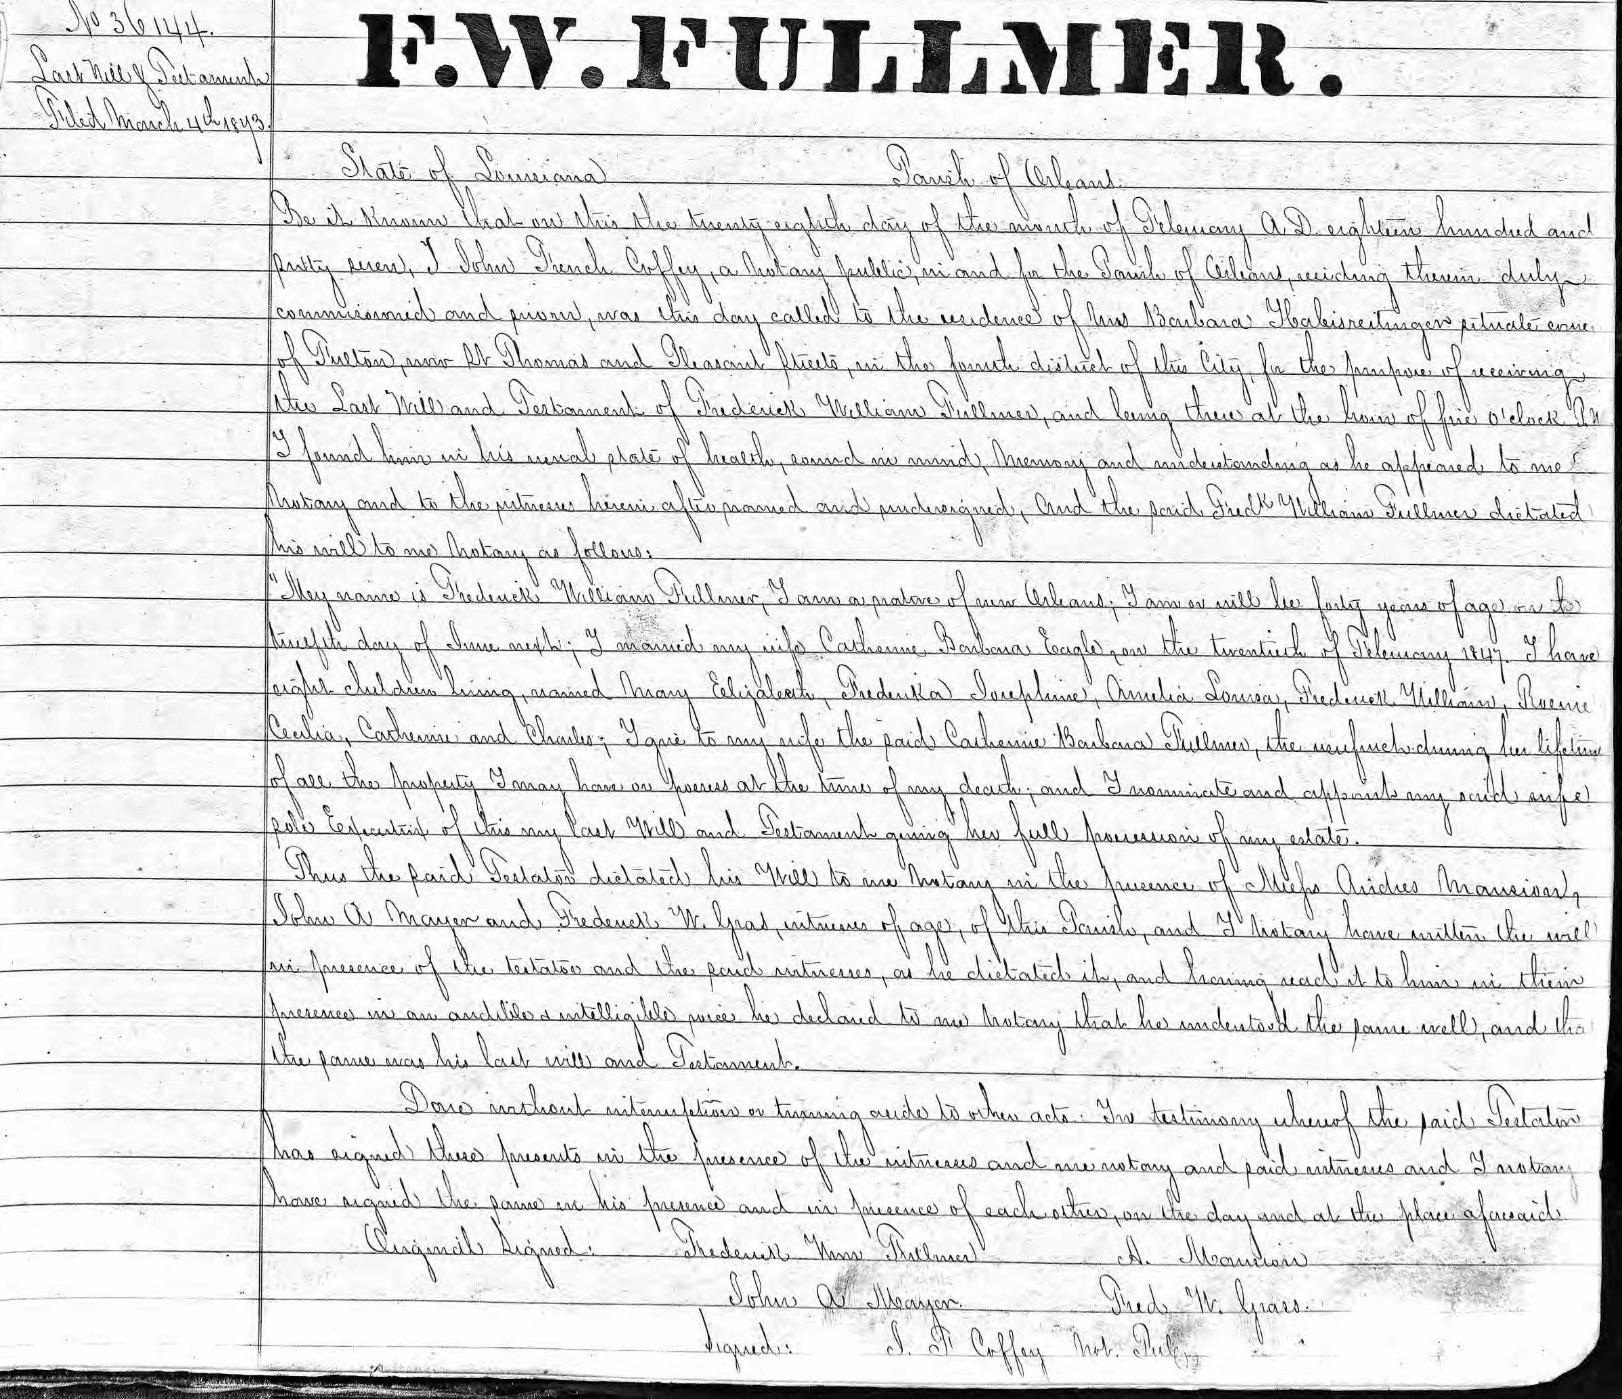 No 36144.
Last Will & Testament
Filed March 4th 1873.
F.W. FULLMER.
State of Louisiana Parish of Orleans.
Be it Known that on this the twenty eighth day of the month of February A.D. eighteen hundred and
sixty seven, I John French Coffey, a Notary public, in and for the Parish of Orleans, residing therein duly
commissioned and sworn, was this day called to the residence of Mrs Barbara Habisreitinger situate corner
of Fulton, now St Thomas and Pleasant Streets, in the fourth district of this City, for the purpose of receiving
the Last Will and Testament of Frederick William Fullmer, and being there at the hour of five o'clock P.M
I found him in his usual state of health, sound in mind, Memory and understanding as he appeared to me
Notary and to the witnesses herein after named and undersigned, And the said Fredk William Fullmer dictated
his will to me Notary as follows:
"My name is Frederick William Fullmer, I am a native of new Orleans; I am or will be forty years of age on the
twelfth day of June next; I married my wife Catherine Barbara Eagle, on the twentieth of February 1847. I have
eight children living, named Mary Elizabeth, Frederika Josephine, Amelia Louisa, Frederick William,
Cecilia, Catherine and Charles; I give to my wife the said Catherine Barbara Fullmer, the usufruct during her lifetime
of all the property I may have or possess at the time of my death; and I nominate and appoint my said wife
sole Executrix of this my last Will and Testament giving her full possession of my estate.
Thus the said Testator dictated his Will to me Notary in the presence of Messrs Mansion,
John A Mayer and Frederick W. Gras, witnesses of age, of this Parish, and I Notary have written the will
in presence of the testator and the said witnesses, as he dictated it, and having read it to him in their
presence in an audible & intelligible voice he declared to me Notary that he understood the same well, and tha
the same was his last will and Testament.
Done without interruption or turning aside to other acts. In testimony whereof the said Testator
has signed these presents in the presence of the witnesses and me notary and said witnesses and I notary
have signed the same in his presence and in presence of each other, on the day and at the place aforesaid
Original Signed: Frederick Wm Fullmer A. Mansion
John A Mayer. Fred W. Grass.
Signed: J. F Coffey Not. Pub,